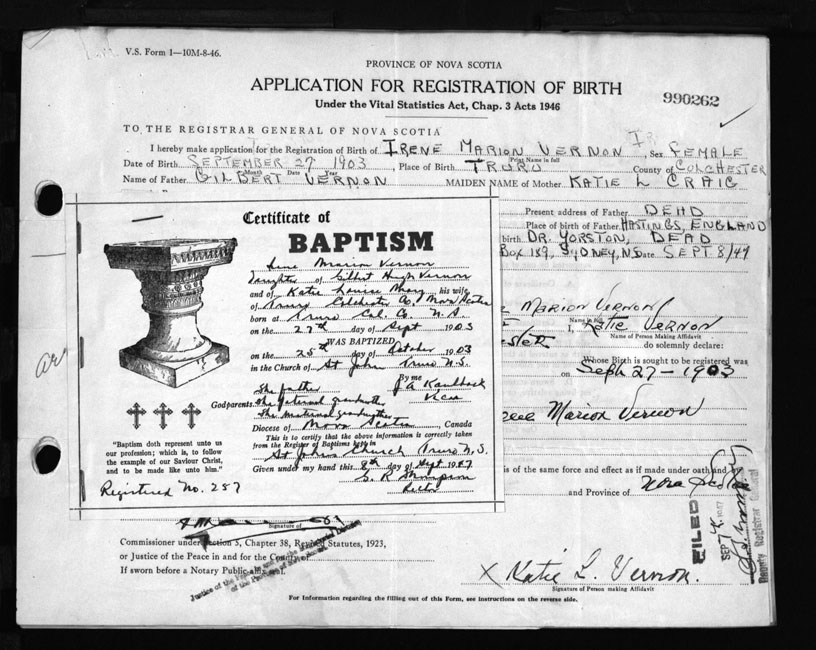 V.S. Form 1—10M-8-46.
PROVINCE OF NOVA SCOTIA
APPLICATION FOR REGISTRATION OF BIRTH
Under the Vital Statistics Act, Chap. 3 Acts 1946
990262
TO THE REGISTRAR GENERAL OF NOVA SCOTIA
I hereby make application for the Registration of Birth of IRENE MARION VERNON, Sex FEMALE
Print Name in full
Date of Birth SEPTEMBER 27 1903, Place of Birth TRURO County of COLCHESTER
Month Date Year
Name of Father GILBERT VERNON MAIDEN NAME of Mother KATIE L CRAIG
Present address of Father DEAD
Place of birth of Father HASTINGS, ENGLAND
birth DR. YORSTON, DEAD
BOX 189, SYDNEY, N.S. Date SEPT 8/47
MARION VERNON
Name in full
I, KATIE VERNON
Name of Person Making Affidavit
do solemnly declare:
Whose Birth is sought to be registered was
on Sept 27-1903
Marion Vernon
is of the same force and effect as if made under oath and by
and Province of Nova Scotia
Certificate of
BAPTISM
Irene Marion Vernon
Daughter of Gilbert Hugh Vernon
and of Katie Louise Mary his wife,
of Truro Colchester Co, Nova Scotia
born at Truro Col. Co. N.S.
on the 27th day of Sept 1903
WAS BAPTIZED
on the 25th day of October 1903
in the Church of St John Truro N.S.
By me
The father J A Kaulback
Godparents The paternal grandmother Vicar
The maternal grandmother
Diocese of Nova Scotia, Canada
This is to certify that the above information is correctly taken
from the Register of Baptisms kept in
St John's Church Truro N.S.
Given under my hand this 8th day of Sept 1947
Rector
"Baptism doth represent unto us
our profession; which is, to follow
the example of our Saviour Christ,
and to be made like unto him."
Registered No. 287
Signature of
Commissioner under Section 5, Chapter 38, Revised Statutes, 1923,
or Justice of the Peace in and for the County
If sworn before a Notary Public affix seal.
FILED
Deputy Registrar General
X Katie L. Vernon.
Signature of Person making Affidavit
For Information regarding the filling out of this Form, see instructions on the reverse side.